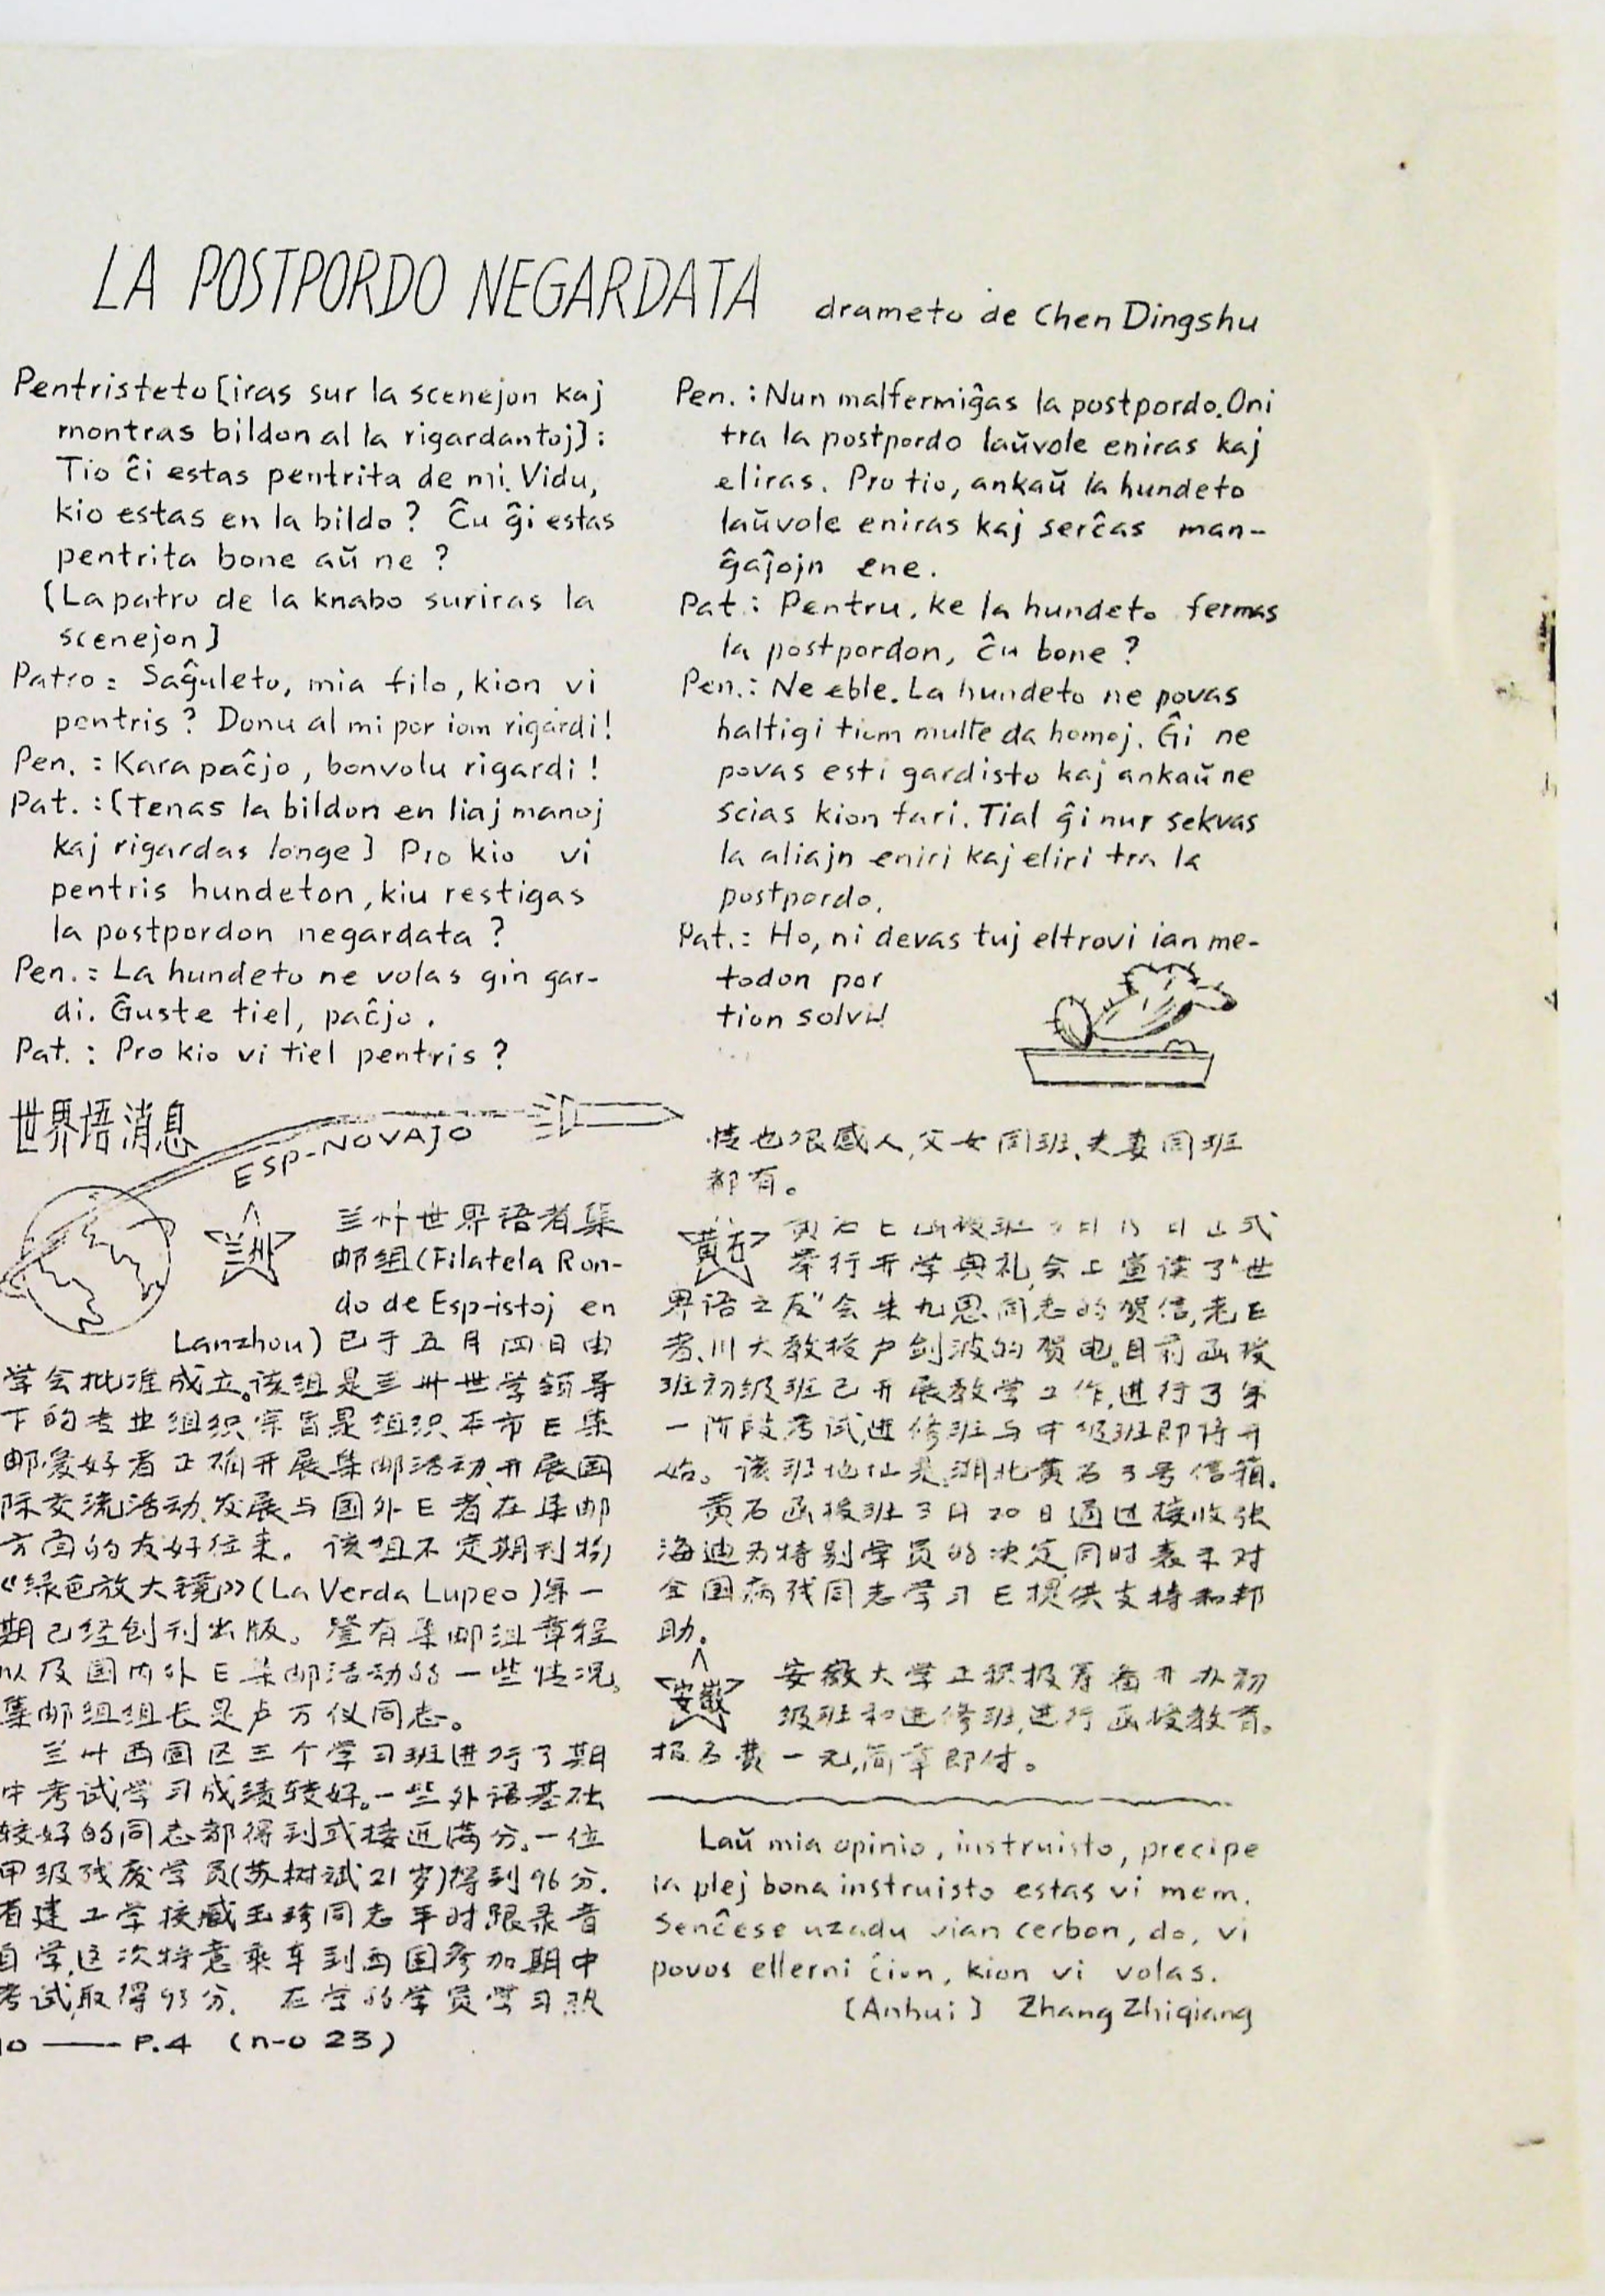 LA POSTPORDO NEGARDATA drameto de Chen Dingshu
Pentristeto [iras sur la scenejon kaj
montras bildon al la rigardantoj]:
Tio ĉi estas pentrita de mi. Vidu,
kio estas en la bildo? Ĉu ĝi estas
pentrita bone aŭ ne?
[La patro de la knabo suriras la
scenejon]
Patro: Saĝuleto, mia filo, kion vi
pentris? Donu al mi por iom rigardi!
Pen.: Kara paĉjo, bonvolu rigardi!
Pat.: [tenas la bildon en liaj manoj
kaj rigardas longe] Pro kio vi
pentris hundeton, kiu restigas
la postpordon negardata?
Pen.: La hundeto ne volas gin gar-
di. Ĝuste tiel, paĉjo.
Pat.: Pro kio vi tiel pentris?
Pen.: Nun malfermiĝas la postpordo. Oni
tra la postpordo laŭvole eniras kaj
eliras. Pro tio, ankaŭ la hundeto
laŭvole eniras kaj serĉas man-
ĝaĵojn ene.
Pat.: Pentru, ke la hundeto fermas
la postpordon, ĉu bone?
Pen.: Ne eble. La hundeto ne povas
haltigi tiom multe da homoj. Ĝi ne
povas esti gardisto kaj ankaŭ ne
scias kion fari. Tial ĝi nur sekvas
la aliajn eniri kaj eliri tra la
postpordo.
Pat.: Ho, ni devas tuj eltrovi ian me-
todon por
tion solvi!
世界语消息
ESP-NOVAJO
兰州
兰州世界语者集
邮组(Filatela Ron-
do de Esp-istoj en
Lanzhou)已于五月四日由
学会批准成立。该组是兰州世学领导
下的专业组织,宗旨是组织本市E集
邮爱好者正确开展集邮活动,开展国
际交流活动,发展与国外E者在集邮
方面的友好往来。该组不定期刊物
《绿色放大镜》(La Verda Lupeo)第一
期已经创刊出版。登有集邮组章程
以及国内外E集邮活动的一些情况。
集邮组组长是卢万仪同志。
兰州西固区三个学习班进行了期
中考试,学习成绩较好。一些外语基础
较好的同志都得到或接近满分。一位
甲级残废学员(苏树斌21岁)得到96分。
省建工学校戚玉珍同志平时跟录音
自学,这次特意乘车到西固参加期中
考试,取得93分。在学的学员学习热
10 —— P.4 (n-o 23)
情也很感人,父女同班、夫妻同班
都有。
黄石
黄石E函授班 月15日正式
举行开学典礼,会上宣读了“世
界语之友”会朱九思同志的贺信,老E
者、川大教授卢剑波的贺电。目前函授
班初级班已开展教学工作,进行了第
一阶段考试,进修班与中级班即将开
始。该班地址是:湖北黄石3号信箱.
黄石函授班3月20日通过接收张
海迪为特别学员的决定,同时表示对
全国病残同志学习E提供支持和帮
助。
安徽
安徽大学正积极筹备开办初
级班和进修班,进行函授教育。
报名费一元,简章即付。
Laŭ mia opinio, instruisto, precipe
la plej bona instruisto estas vi mem.
Senĉese uzadu vian cerbon, do, vi
povos ellerni ĉion, kion vi volas.
[Anhui] Zhang Zhiqiang